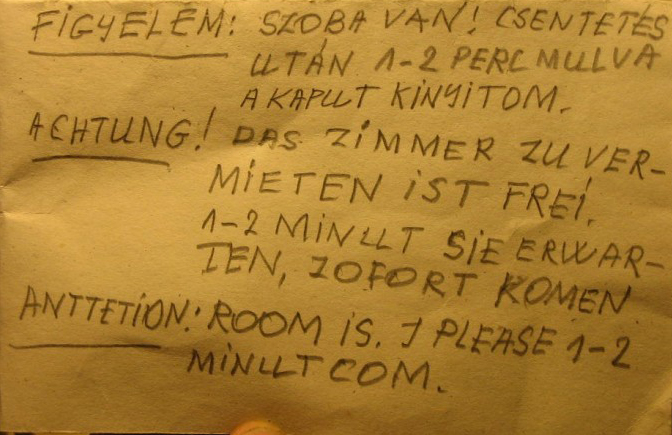 FİGYELÉM: SZOBA VAN! CSENTETÉS
UTÁN 1-2 PERC MULVA
A KAPUT KINYITOM.
ACHTUNG! DAS ZİMMER ZU VER-
MİETEN İST FREİ.
1-2 MİNUT SİE ERWAR-
TEN, ZOFORT KOMEN
ANTTETİON: ROOM IS. I PLEASE 1-2
MİNUT COM.